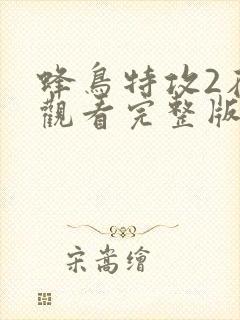 蜂鳥特攻2
觀看完整版
宋嵩繪